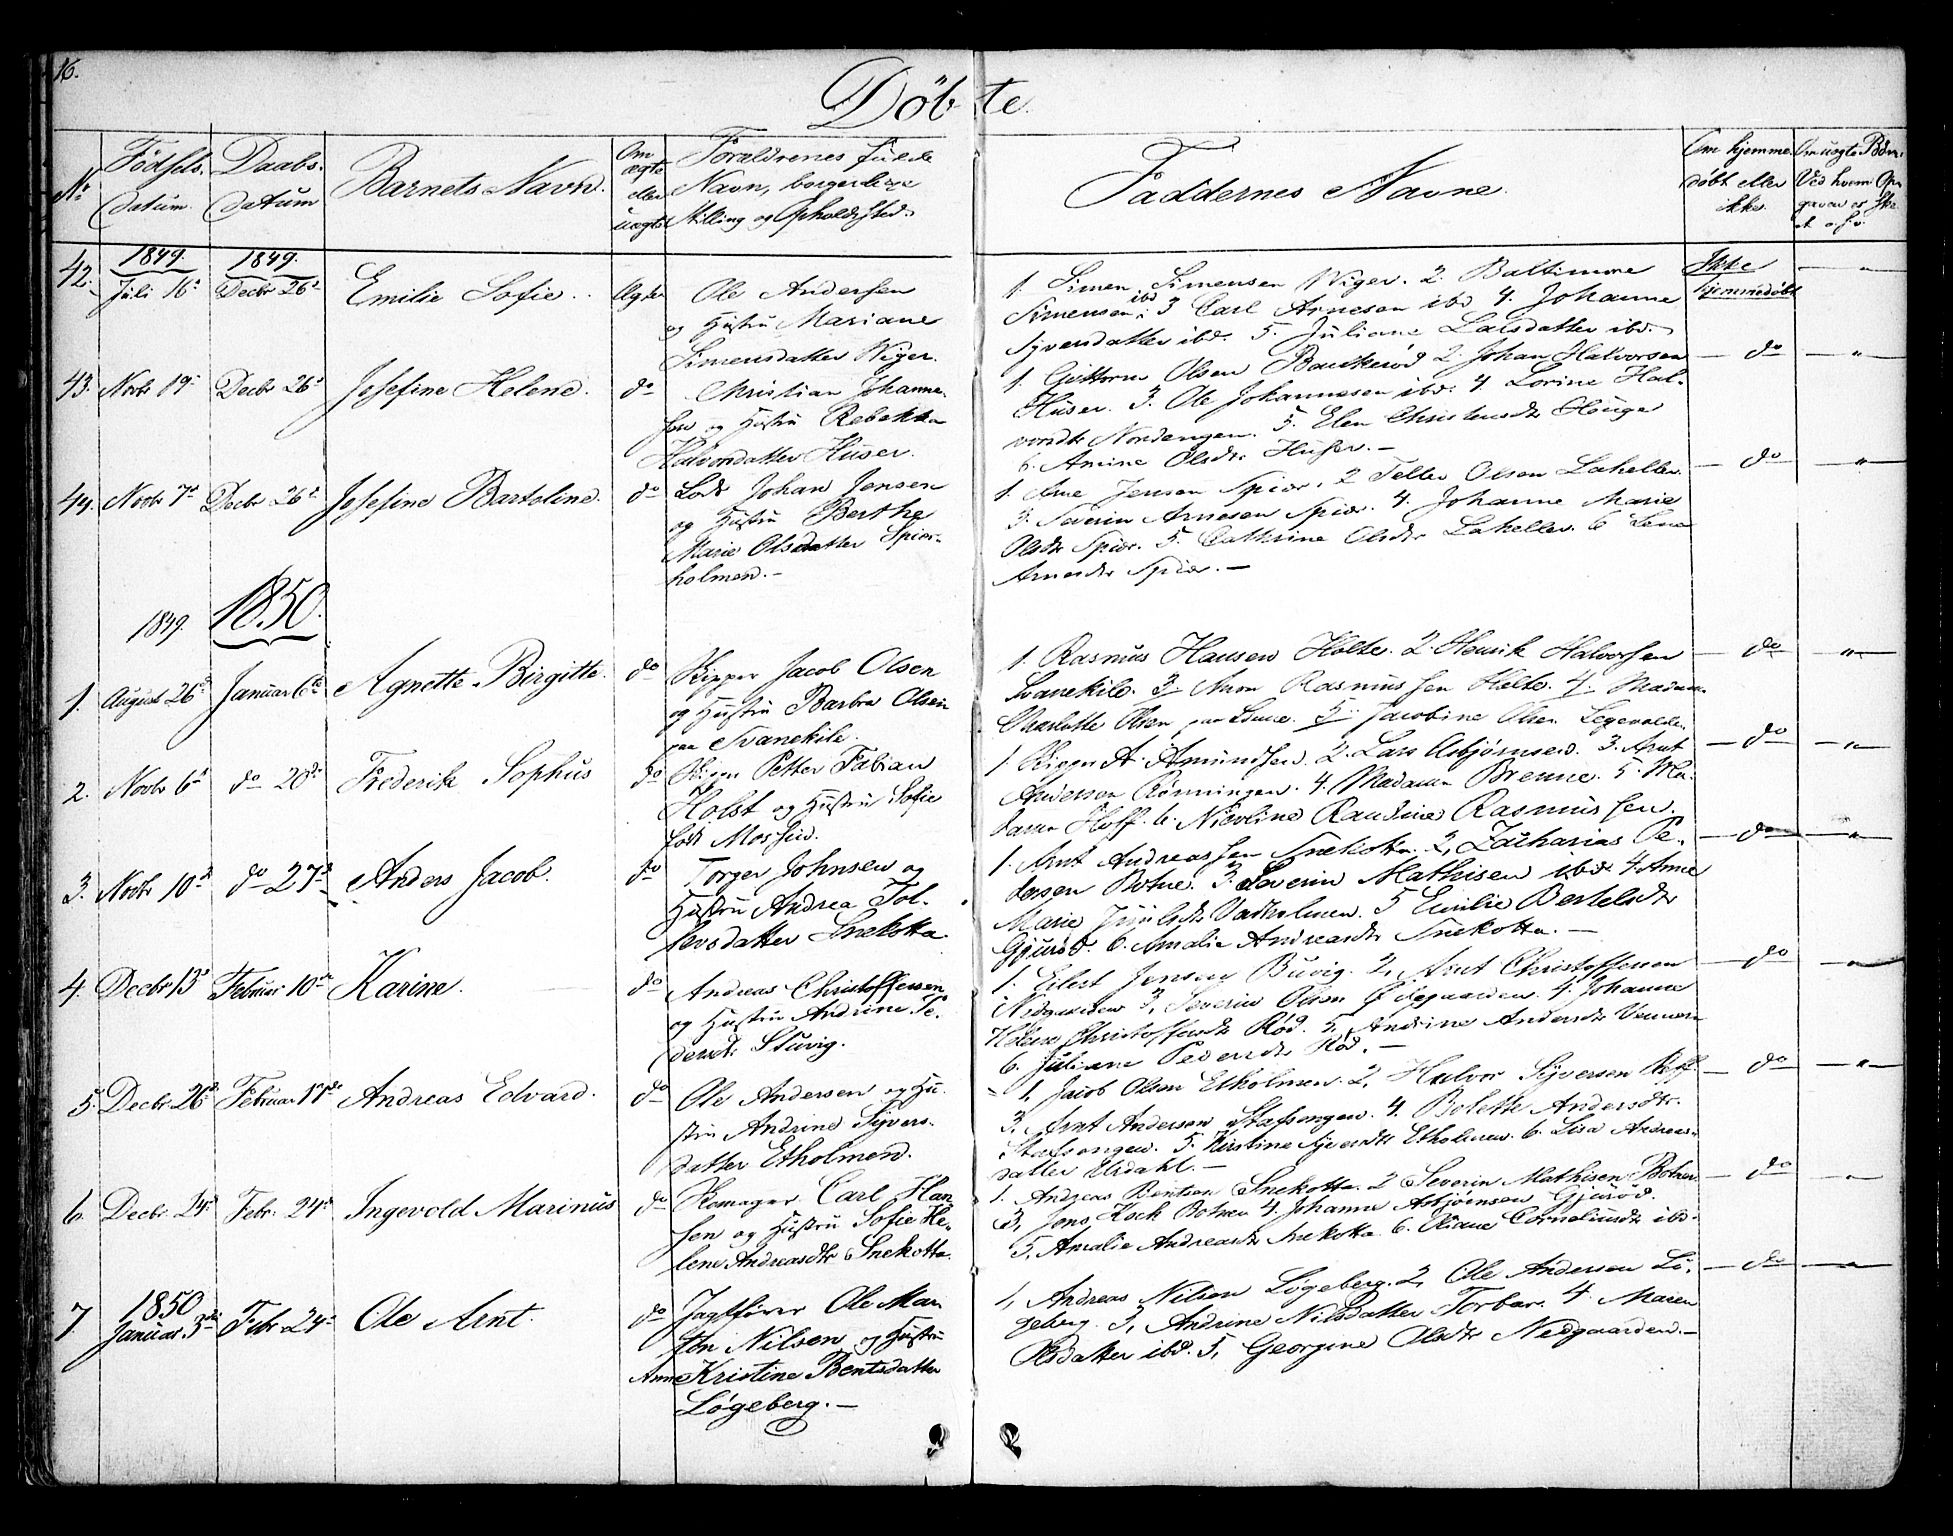 16.
Døbte.
No
Fødsels-
datum.
Daabs-
datum
Barnets Navn.
Om
ægte
eller
uægte
Forældrenes fulde
Navn, borgerlige
Stilling og Opholdssted.
Faddernes Navne.
Om hjemme-
døbt eller
ikke.
Om uægte Børn.
Ved hvem Op-
gaven er Ske
et o.s.v.
42.
1849.
Juli 16d
1849.
Decbr 26d
Emilie Sofie.
Ægte
Ole Andersen
og Hustru Mariane
Simensdatter Viger.
1. Simen Simensen Viger. 2. Baltimore
Simensen ibd 3 Carl Arnesen ibd 4. Johanne
Syversdatter ibd. 5. Juliane Larsdatter ibd.
Ikke
hjemmedøbt
43.
Novbr 19.
Decbr 26d
Josefine Helene.
do
Christian Johanne-
sen og Hustru Rebekka
Halvorsdatter Huser.
1. Guttorm Olsen Bauskerød 2. Johan Halvorsen
Huser. 3. Ole Johannesen ibd. 4 Lorine Hal-
vorsdtr Nordengen. 5. Elen Christensdtr Houge
6. Amine Olsdtr Huser. —
do
44.
Novbr 7d
Decbr 26d
Josefine Bartoline.
do
Lods Johan Jensen
og Hustru Berthe
Marie Olsdatter Spier-
holmen. —
1. Arne Jensen Spier. 2 Tellef Olsen Lahellen
3. Severin Arnesen Spier. 4. Johanne Marie
Olsdtr Spier. 5. Cathrine Olsdtr Lahellen. 6 Lena
Arnesdtr Spier. —
do
1849.
1850.
1.
August 26d
Januar 6te
Agnette Birgitte.
do
Skipper Jacob Olsen
og Hustru Barbra Olsen
paa Svanekile.
1. Rasmus Hansen Holte. 2. Henrik Halvorsen
Svanekile. 3. Aron Rasmussen Holte. 4. Madam
Charlotte Olsen paa 5. Jacobine Olsen
do
2.
Novbr 6d
do 20de
Frederik Sophus
do
Petter Fabian
Holst og Hustru Sofie
født Mossin.
1. A. Amundsen. 2. Lars Asbjørnsen. 3. Arnt
Andersen Rønningen. 4. Madam Brenne. 5. Ma-
dam Hoff. 6. Nicoline Raudine Rasmussen.
do
3.
Novbr 10d
do 27d
Anders Jacob.
do
Torger Johnsen og
Hustru Andrea Tol-
levsdatter Snekotta.
1. Arnt Andreassen Snekotta. 2, Zacharias Pe-
dersen Botne. 3. Severin Mathisen ibd. 4. Anne
Marie Vasholmen. 5 Emilie Bertelsdtr
Gjurød. 6. Amalie Andreasdtr Snekotta. —
do
4.
Decbr 13d
Februar 10de
Karine.
do
Andreas Christoffersen
og Hustru Andrine Pe-
dersdtr Stuvig.
1. Eilert Jensen Buvig. 2, Arnt Christoffersen
Nedgaarden 3, Severin Olsen Ødegaarden. 4. Johanne
Helene Christoffersdtr Rød. 5, Andrine Andersdtr
6. Juliane Pedersdtr Rød. —
do
5.
Decbr 26d
Februar 17de
Andreas Edvard.
do
Ole Andersen og Hu-
stru Andrine Syvers-
datter Etholmen.
1, Jacob Olsen Etholmen. 2, Halvor Syversen
3. Arnt Andersen Stafsengen. 4. Bolette Andersdtr
Stafsengen. 5. Kirstine Syversdtr Etholmen. 6. Lisa Andreas-
datter Ulsdahl. —
do
6.
Decbr 24d
Febr. 24d
Ingevold Marinus
do
Skomager Carl Han-
sen og Hustru Sofie He-
lene Andreasdtr Snekotta.
1. Andreas Bentsen Snekotta. 2 Severin Mathisen Botner
3, Jens Kock Botnen 4. Johanne Asbjørnsen Gjurød.
5, Amalie Andreasdtr Snekotta. 6. Oliane Corneliusdtr ibd.
do
7.
1850
Januar. 3die
Febr 24d
Ole Arnt.
do
Jagtfører Ole Mar-
tin Nilsen og Hustru
Anne Kristine Bentsdatter
Løgeberg. —
1, Andreas Nilsen Løgeberg. 2, Ole Andersen Lø-
geberg. 3, Andrine Nilsdatter Torbar. 4. Maren
Olsdatter ibd. 5, Georgine Olsdtr Nedgaarden. —
do